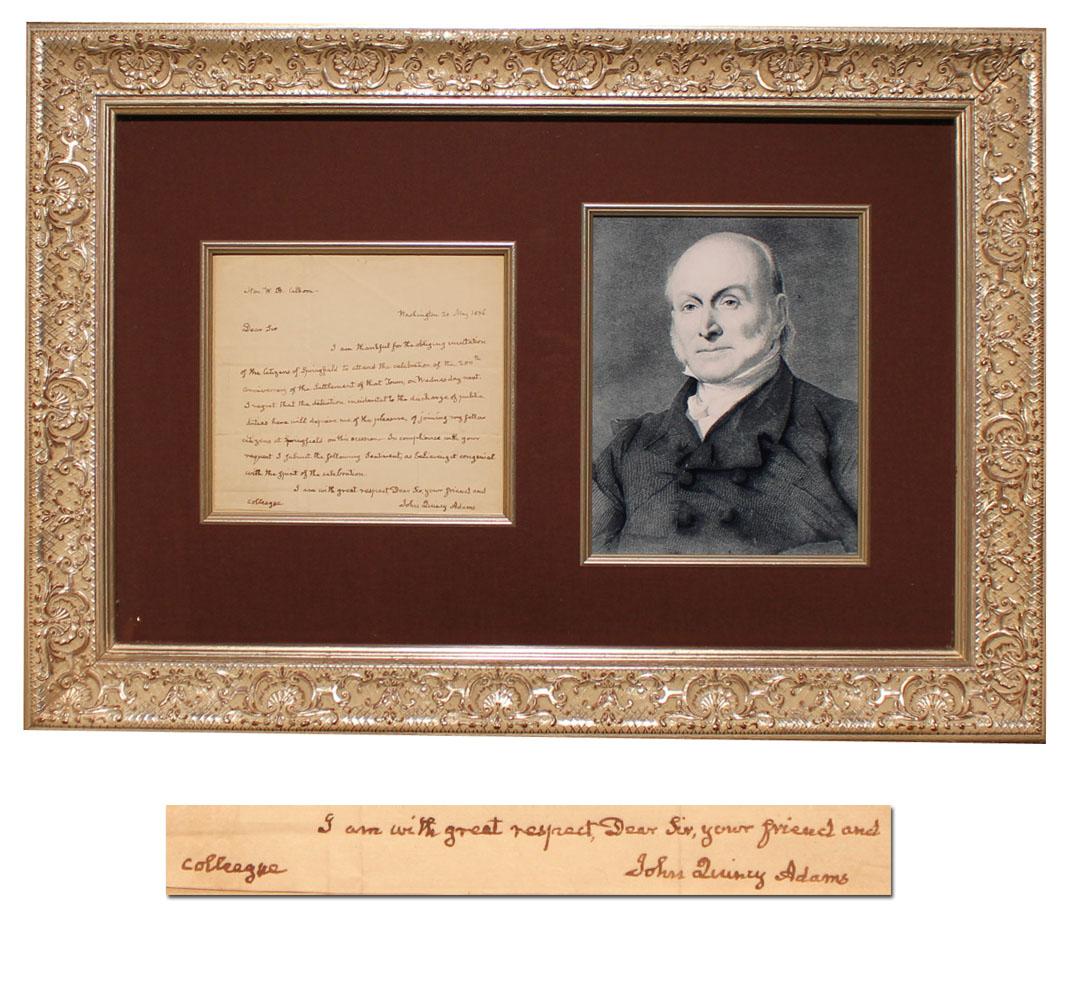 Hon. W. B. Calhoun.
Washington 20 May 1836
Dear Sir
I am thankful for the obliging invitation
of the Citizens of Springfield to attend the celebration of the 200th
anniversary of the Settlement of that Town, on Wednesday next.
I regret that the detention incidental to the discharge of public
duties here will deprive me of the pleasure of joining my fellow
citizens at Springfield on this occasion. In compliance with your
request I submit the following Sentiment, as believing it congenial
with the spirit of the celebration.
I am with great respect Dear Sir, your friend and
colleague
John Quincy Adams
I am with great respect, Dear Sir, your friend and
colleague John Quincy Adams